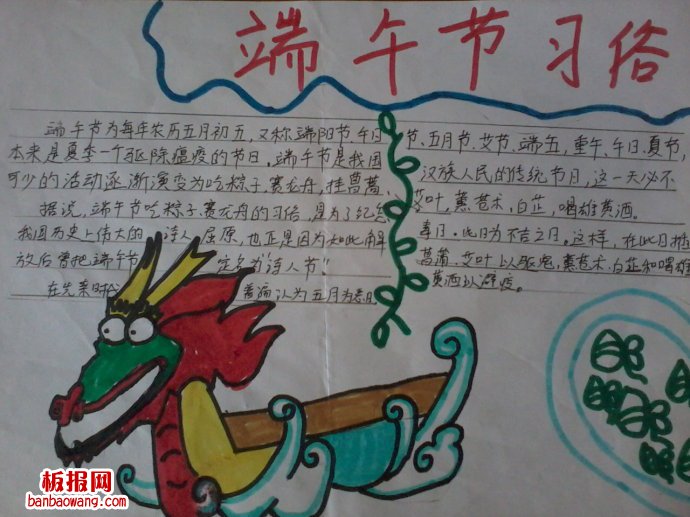 端午节习俗
端午节为每年农历五月初五,又称端阳节、午日节、五月节、艾节、端五,重午、午日、夏节,
本来是夏季一个驱除瘟疫的节日,端午节是我国汉族人民的传统节日,这一天必不
可少的活动逐渐演变为吃粽子,赛龙舟,挂菖蒲、艾叶,薰苍术,白芷,喝雄黄酒。
据说,端午节吃粽子赛龙舟的习俗,是为了纪念
我国历史上伟大的诗人屈原,也正是因为如此解
放后曾把端午节定名为“诗人节”
在先秦时代普遍认为五月为
毒月。此日为不吉之日。这样,在此日插
菖蒲、艾叶以驱鬼,薰苍术、白芷和喝雄
黄酒以避疫。
板报网
banbaowang.com